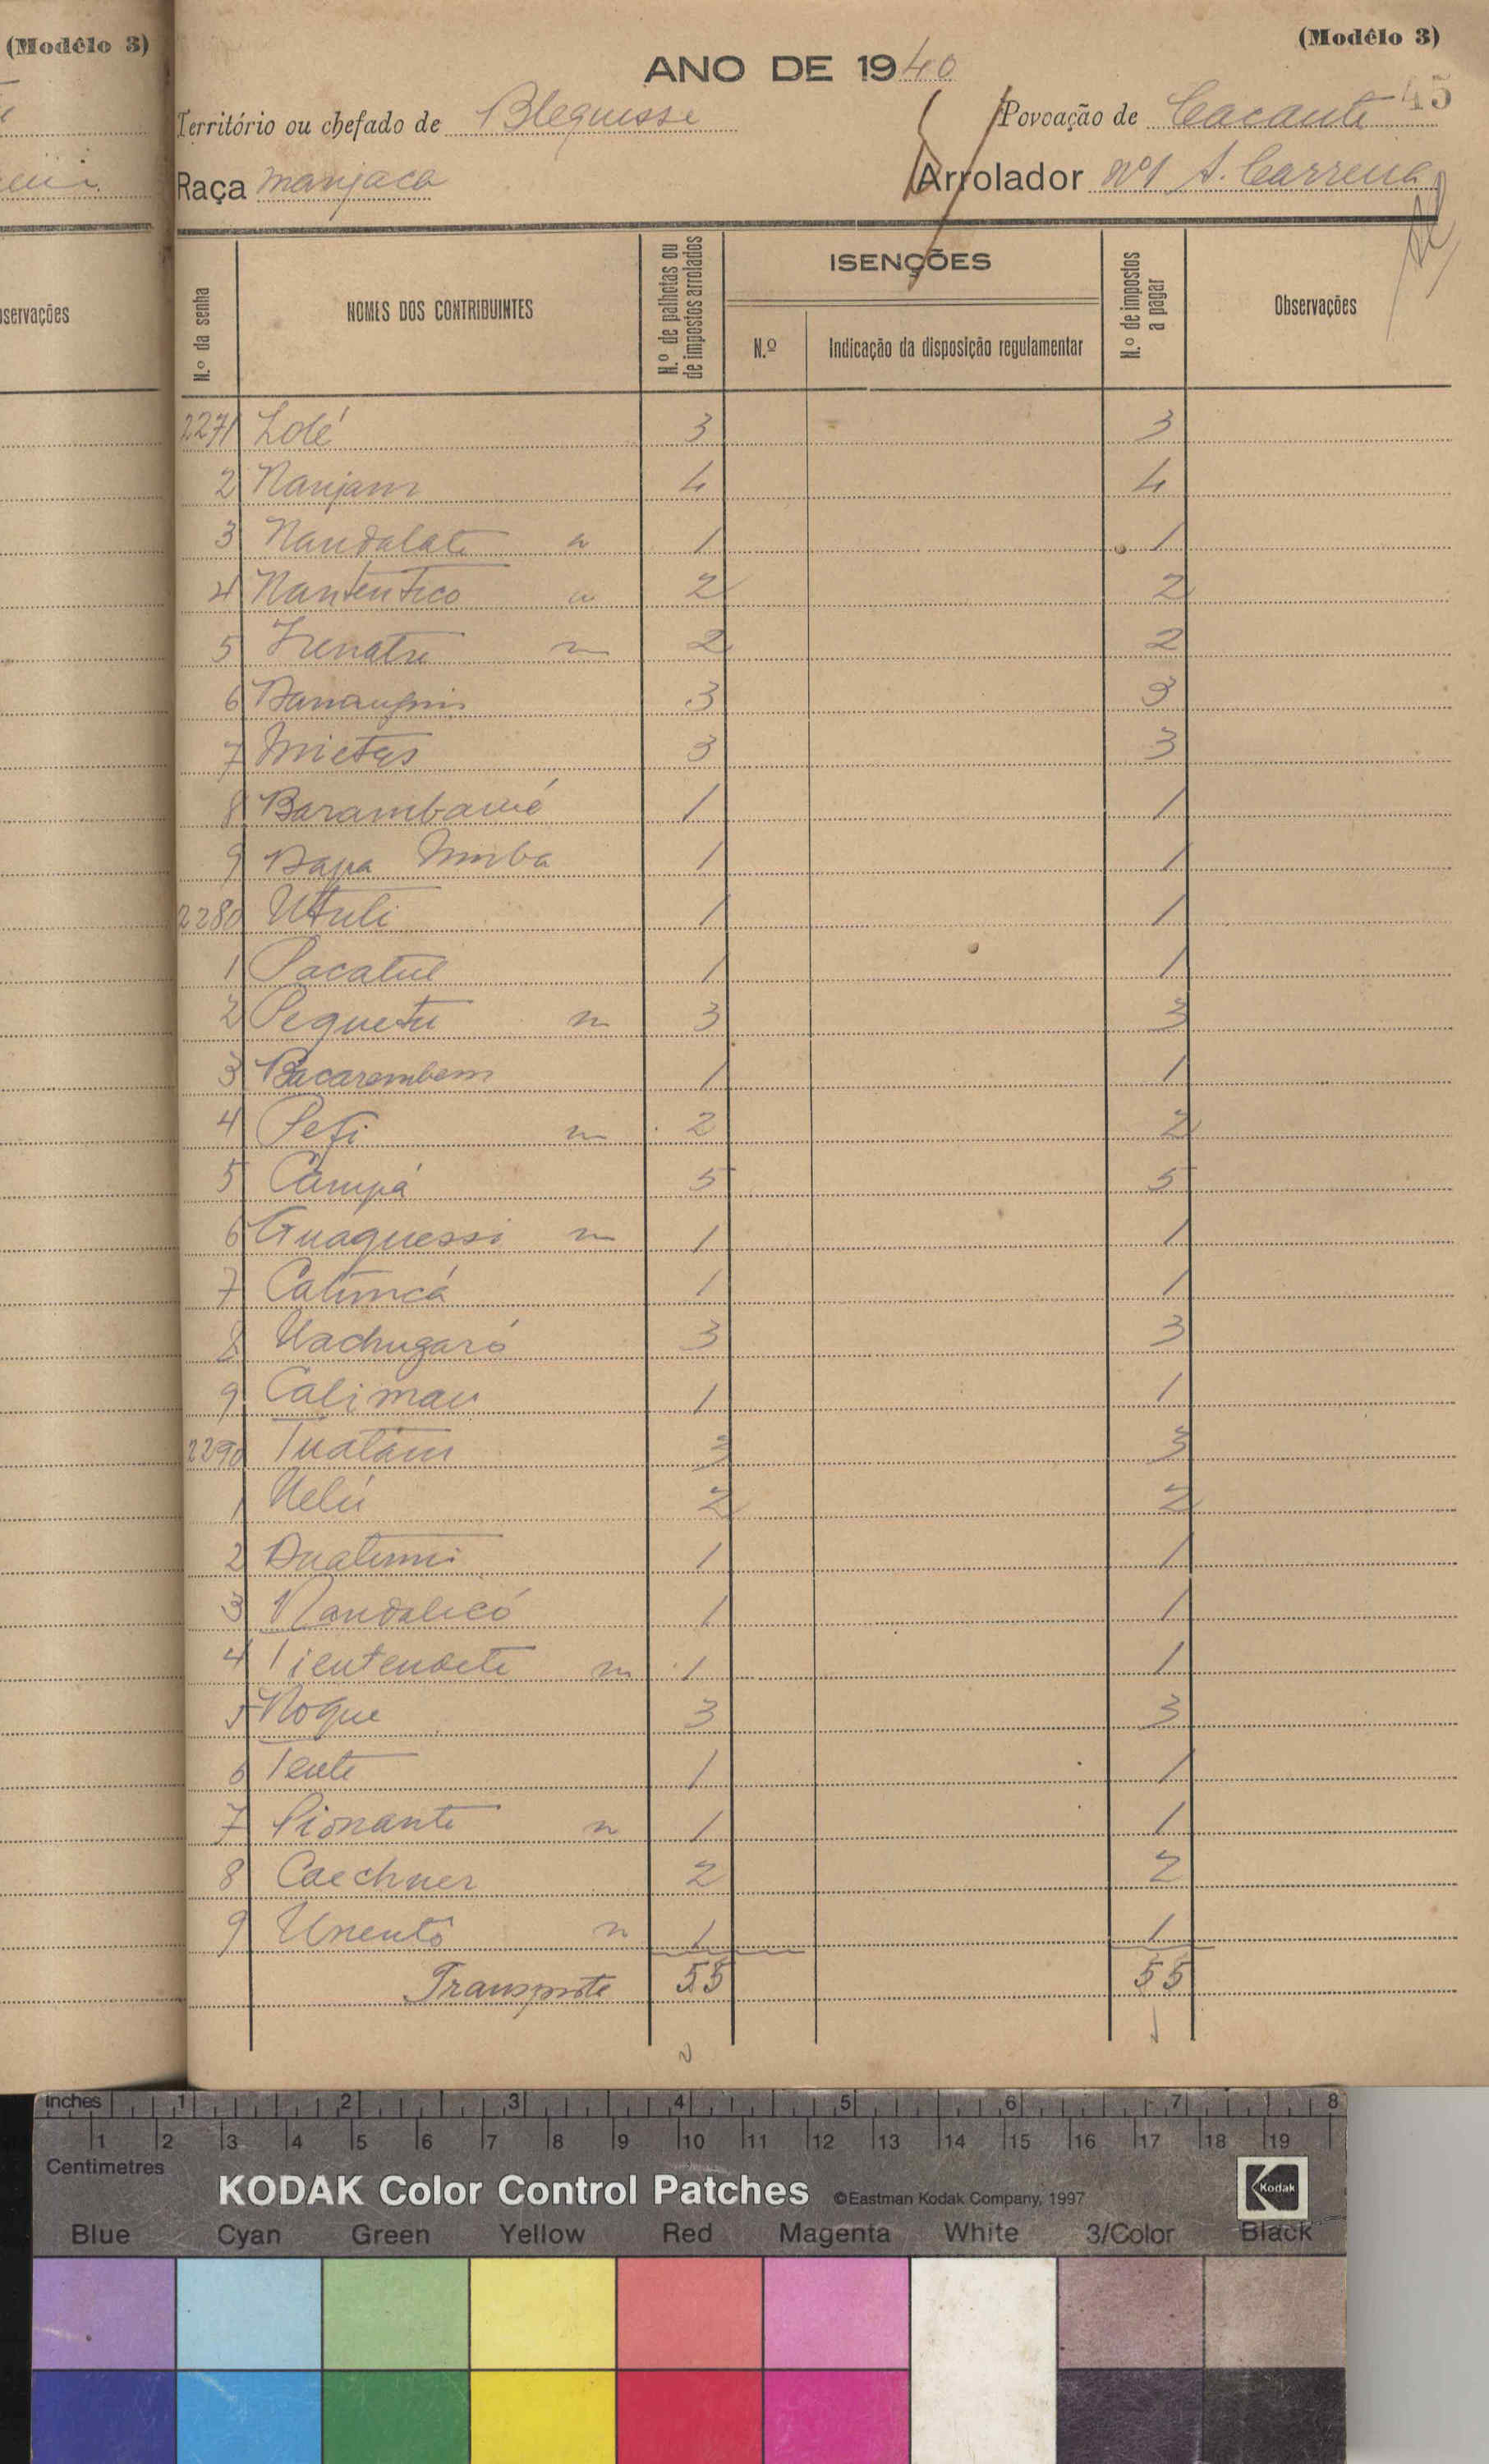 (Modêlo 3)
servações
(Modêlo 3)
45
ANO DE 1940
Território ou chefado de Blequisse
Povoação de Cacante
Raça manjaca
Arrolador nº1 A. Carreira
Nº da senha
NOMES DOS CONTRIBUINTES
N.º de palhotas ou de impostos arrolados
ISENÇÕES
N.º
Indicação da disposição regulamentar
N.º de impostos a pagar
Observações
2271 Lolé 3 3
2 Nanjam 4 4
3 Nandalate 1 1
4 Nantentico 2 2
5 2 2
6 3 3
7 3 3
8 Barambaué 1 1
9 1 1
2280 Utuli 1 1
1 Pacatul 1 1
2 Pequetu 3 3
3 Bacarembem 1 1
4 Pefi 2 2
5 Campá 5 5
6 Guaquessi 1 1
7 Catuncá 1 1
8 Uachugaró 3 3
9 Calimau 1 1
2290 Tuatam 3 3
1 Uelú 2 2
2 1 1
3 Nandalicó 1 1
4 1 1
5 Noque 3 3
6 Tente 1 1
7 Pionante 1 1
8 Caechner 2 2
9 Unentô 1 1
Transporte 55 55
inches 1 2 3 4 5 6 7 8
1 2 3 4 5 6 7 8 9 10 11 12 13 14 15 16 17 18 19
Centimetres
KODAK Color Control Patches ©Eastman Kodak Company, 1997 Kodak
Blue Cyan Green Yellow Red Magenta White 3/Color Black